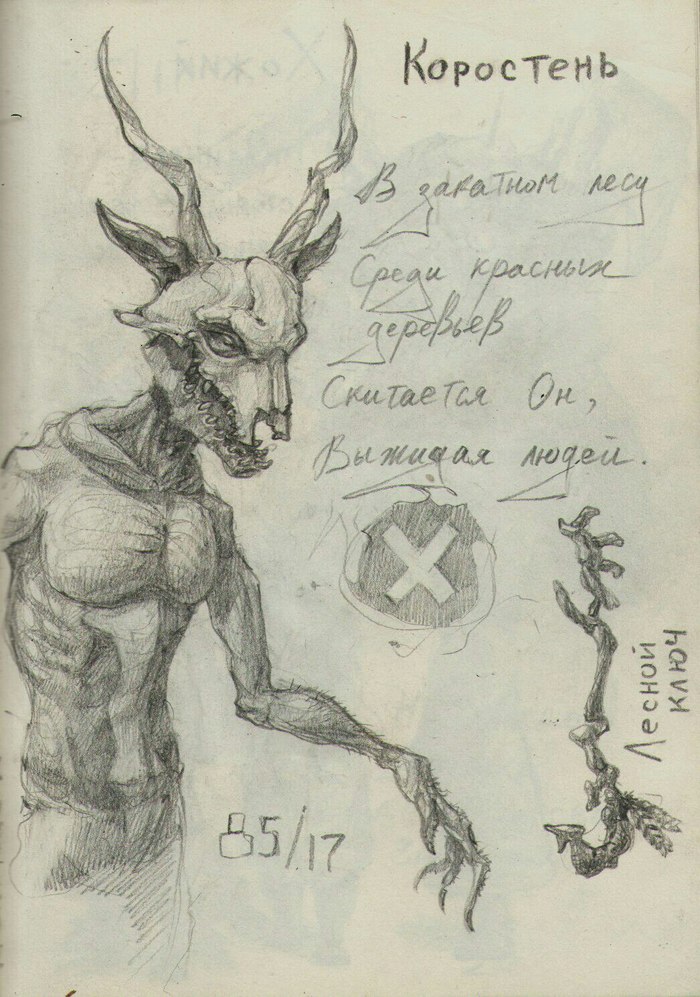 Коростень
В закатном лесу
Среди красных
деревьев
Скитается Он,
Выжидая людей.
Лесной
ключ
85/17